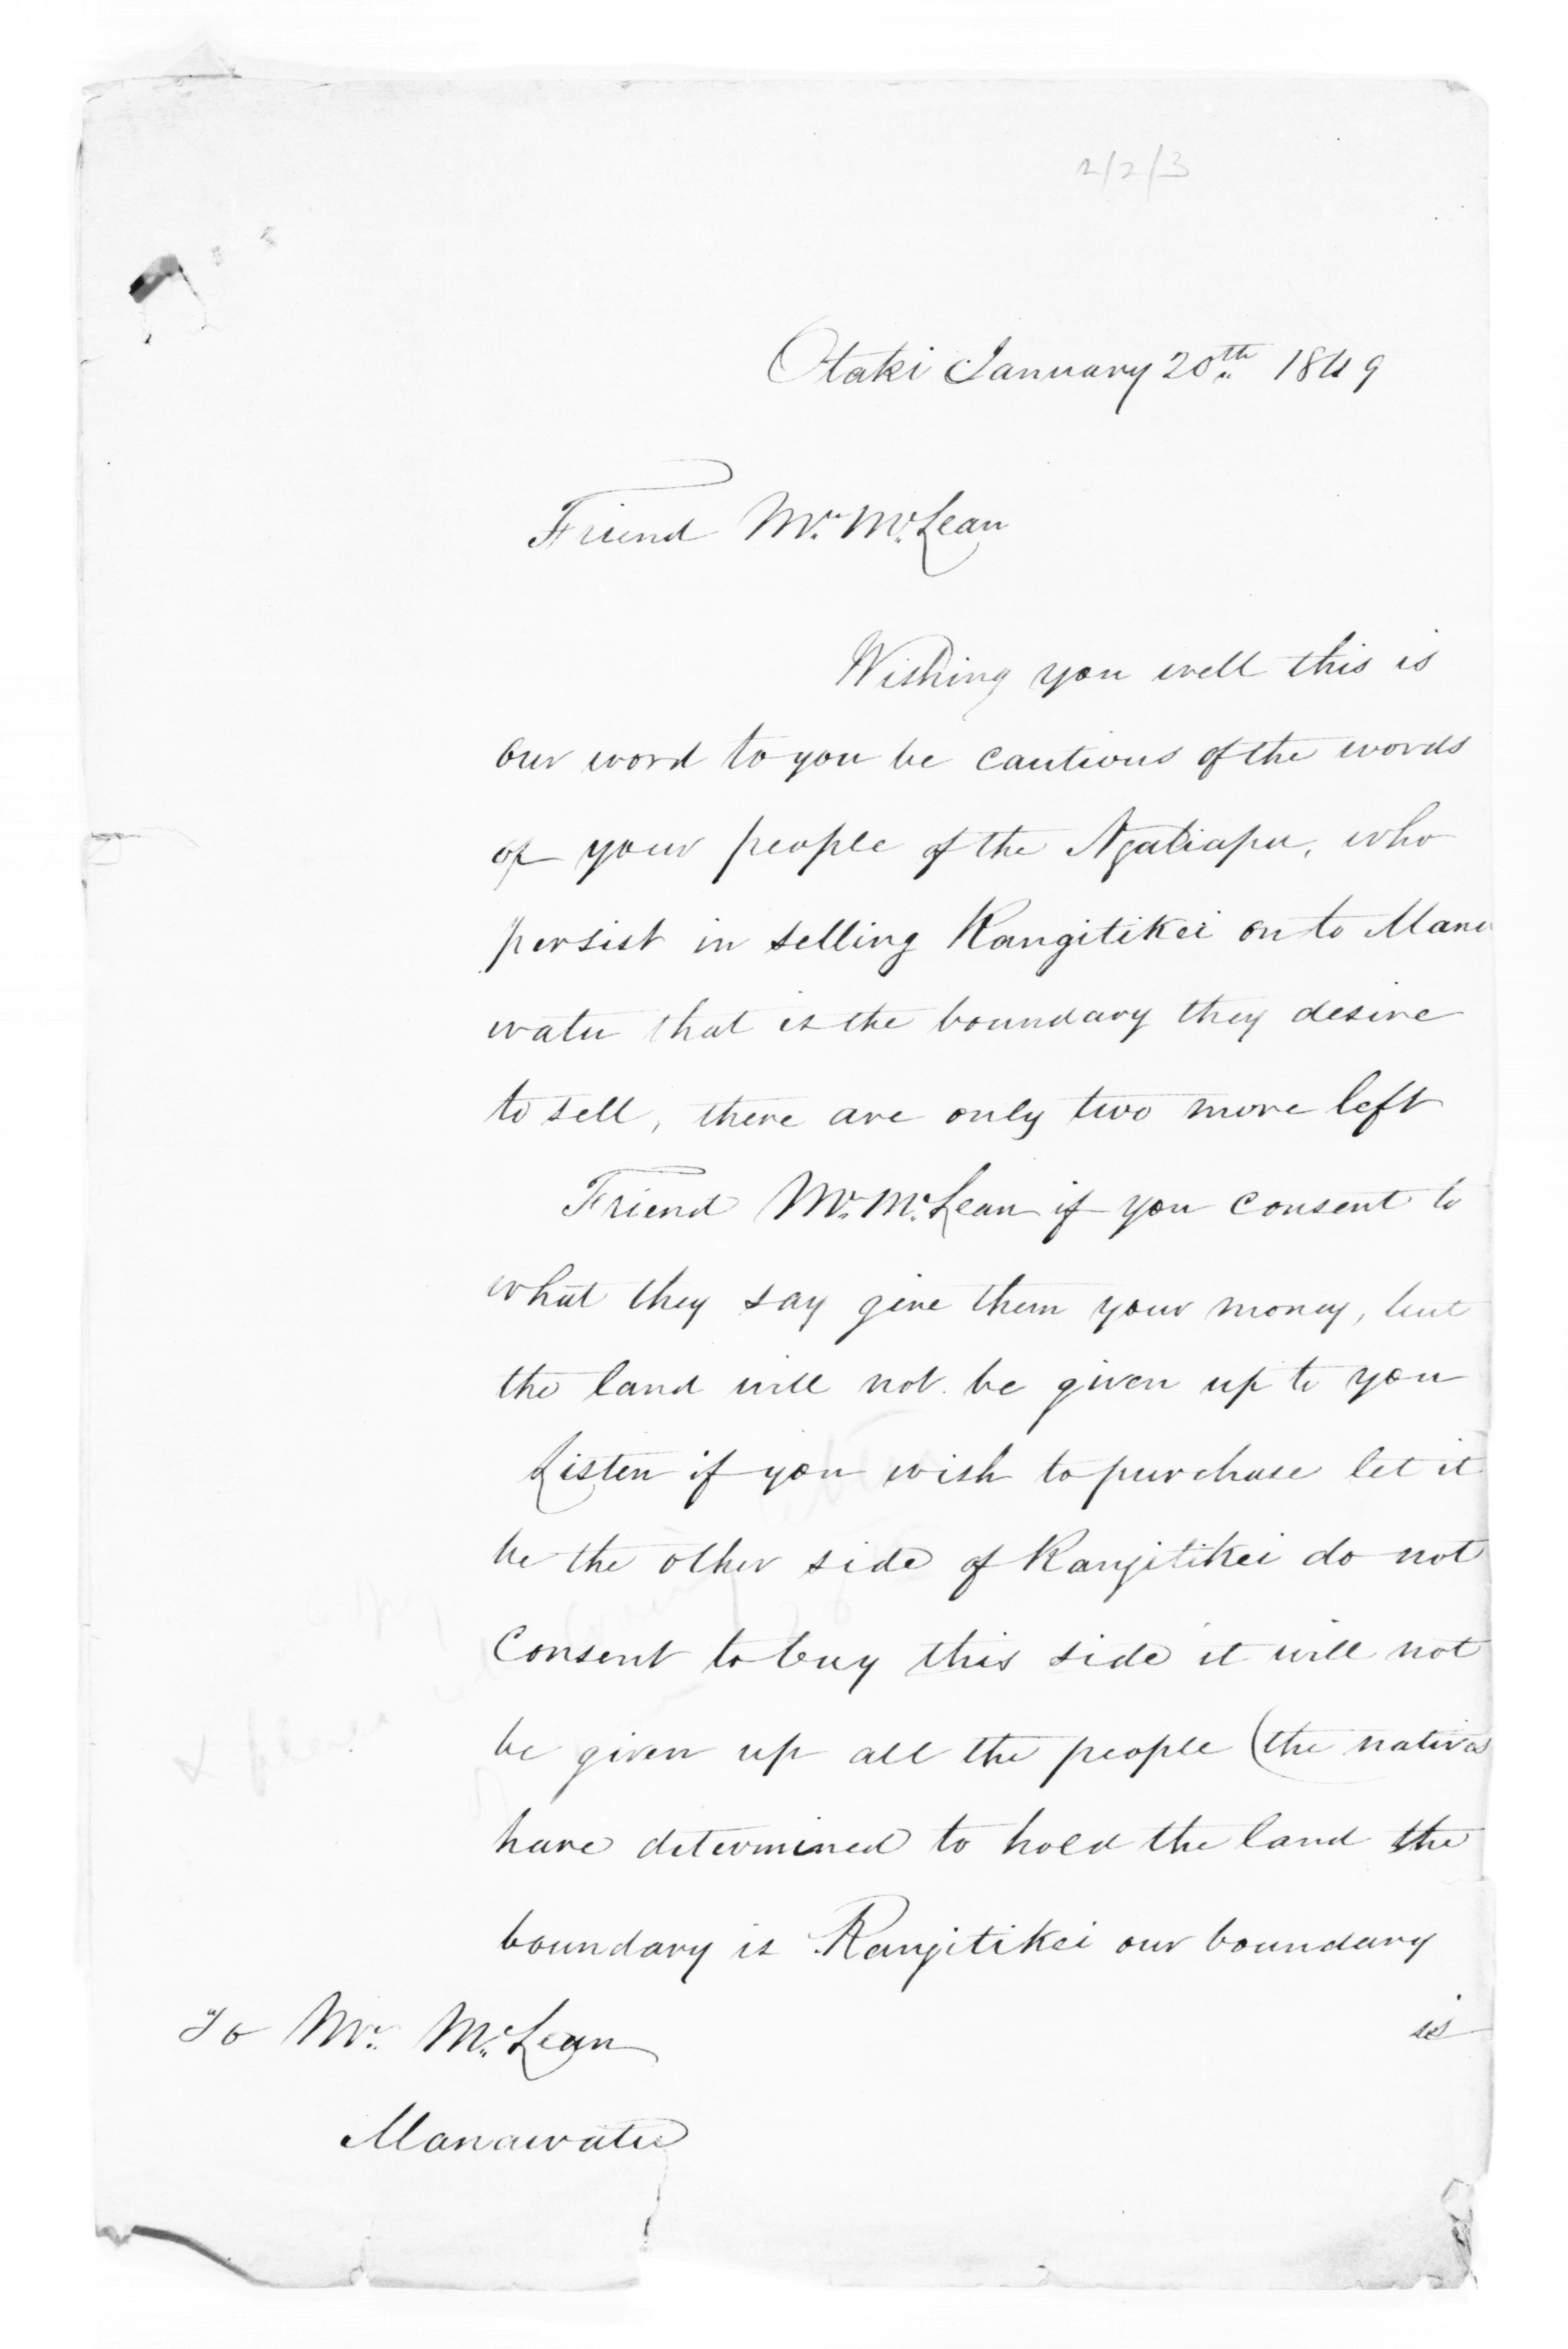 2/2/3
Otaki January 20th 1849
Friend Mr. McLean
Wishing you well this is
our word to you be cautious of the words
of your people of the Ngatiapa, who
persist in selling Rangitikei on to Mana
watu that is the boundary they desire
to sell, there are only two more left
Friend Mr. McLean if you consent to
what they say give them your money, but
the land will not be given up to you
Listen if you wish to purchase let it
be the other side of Rangitikei do not
consent to buy this side it will not
be given up all the people (the natives
have determined to hold the land the
boundary is Rangitikei our boundary
is
To Mr. McLean
Manawatu